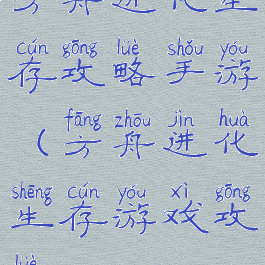 方舟进化生
cún gōng lüè shǒu yóu
存攻略手游
fāng zhōu jìn huà
（方舟进化
shēng cún yóu xì gōng
生存游戏攻
lüè